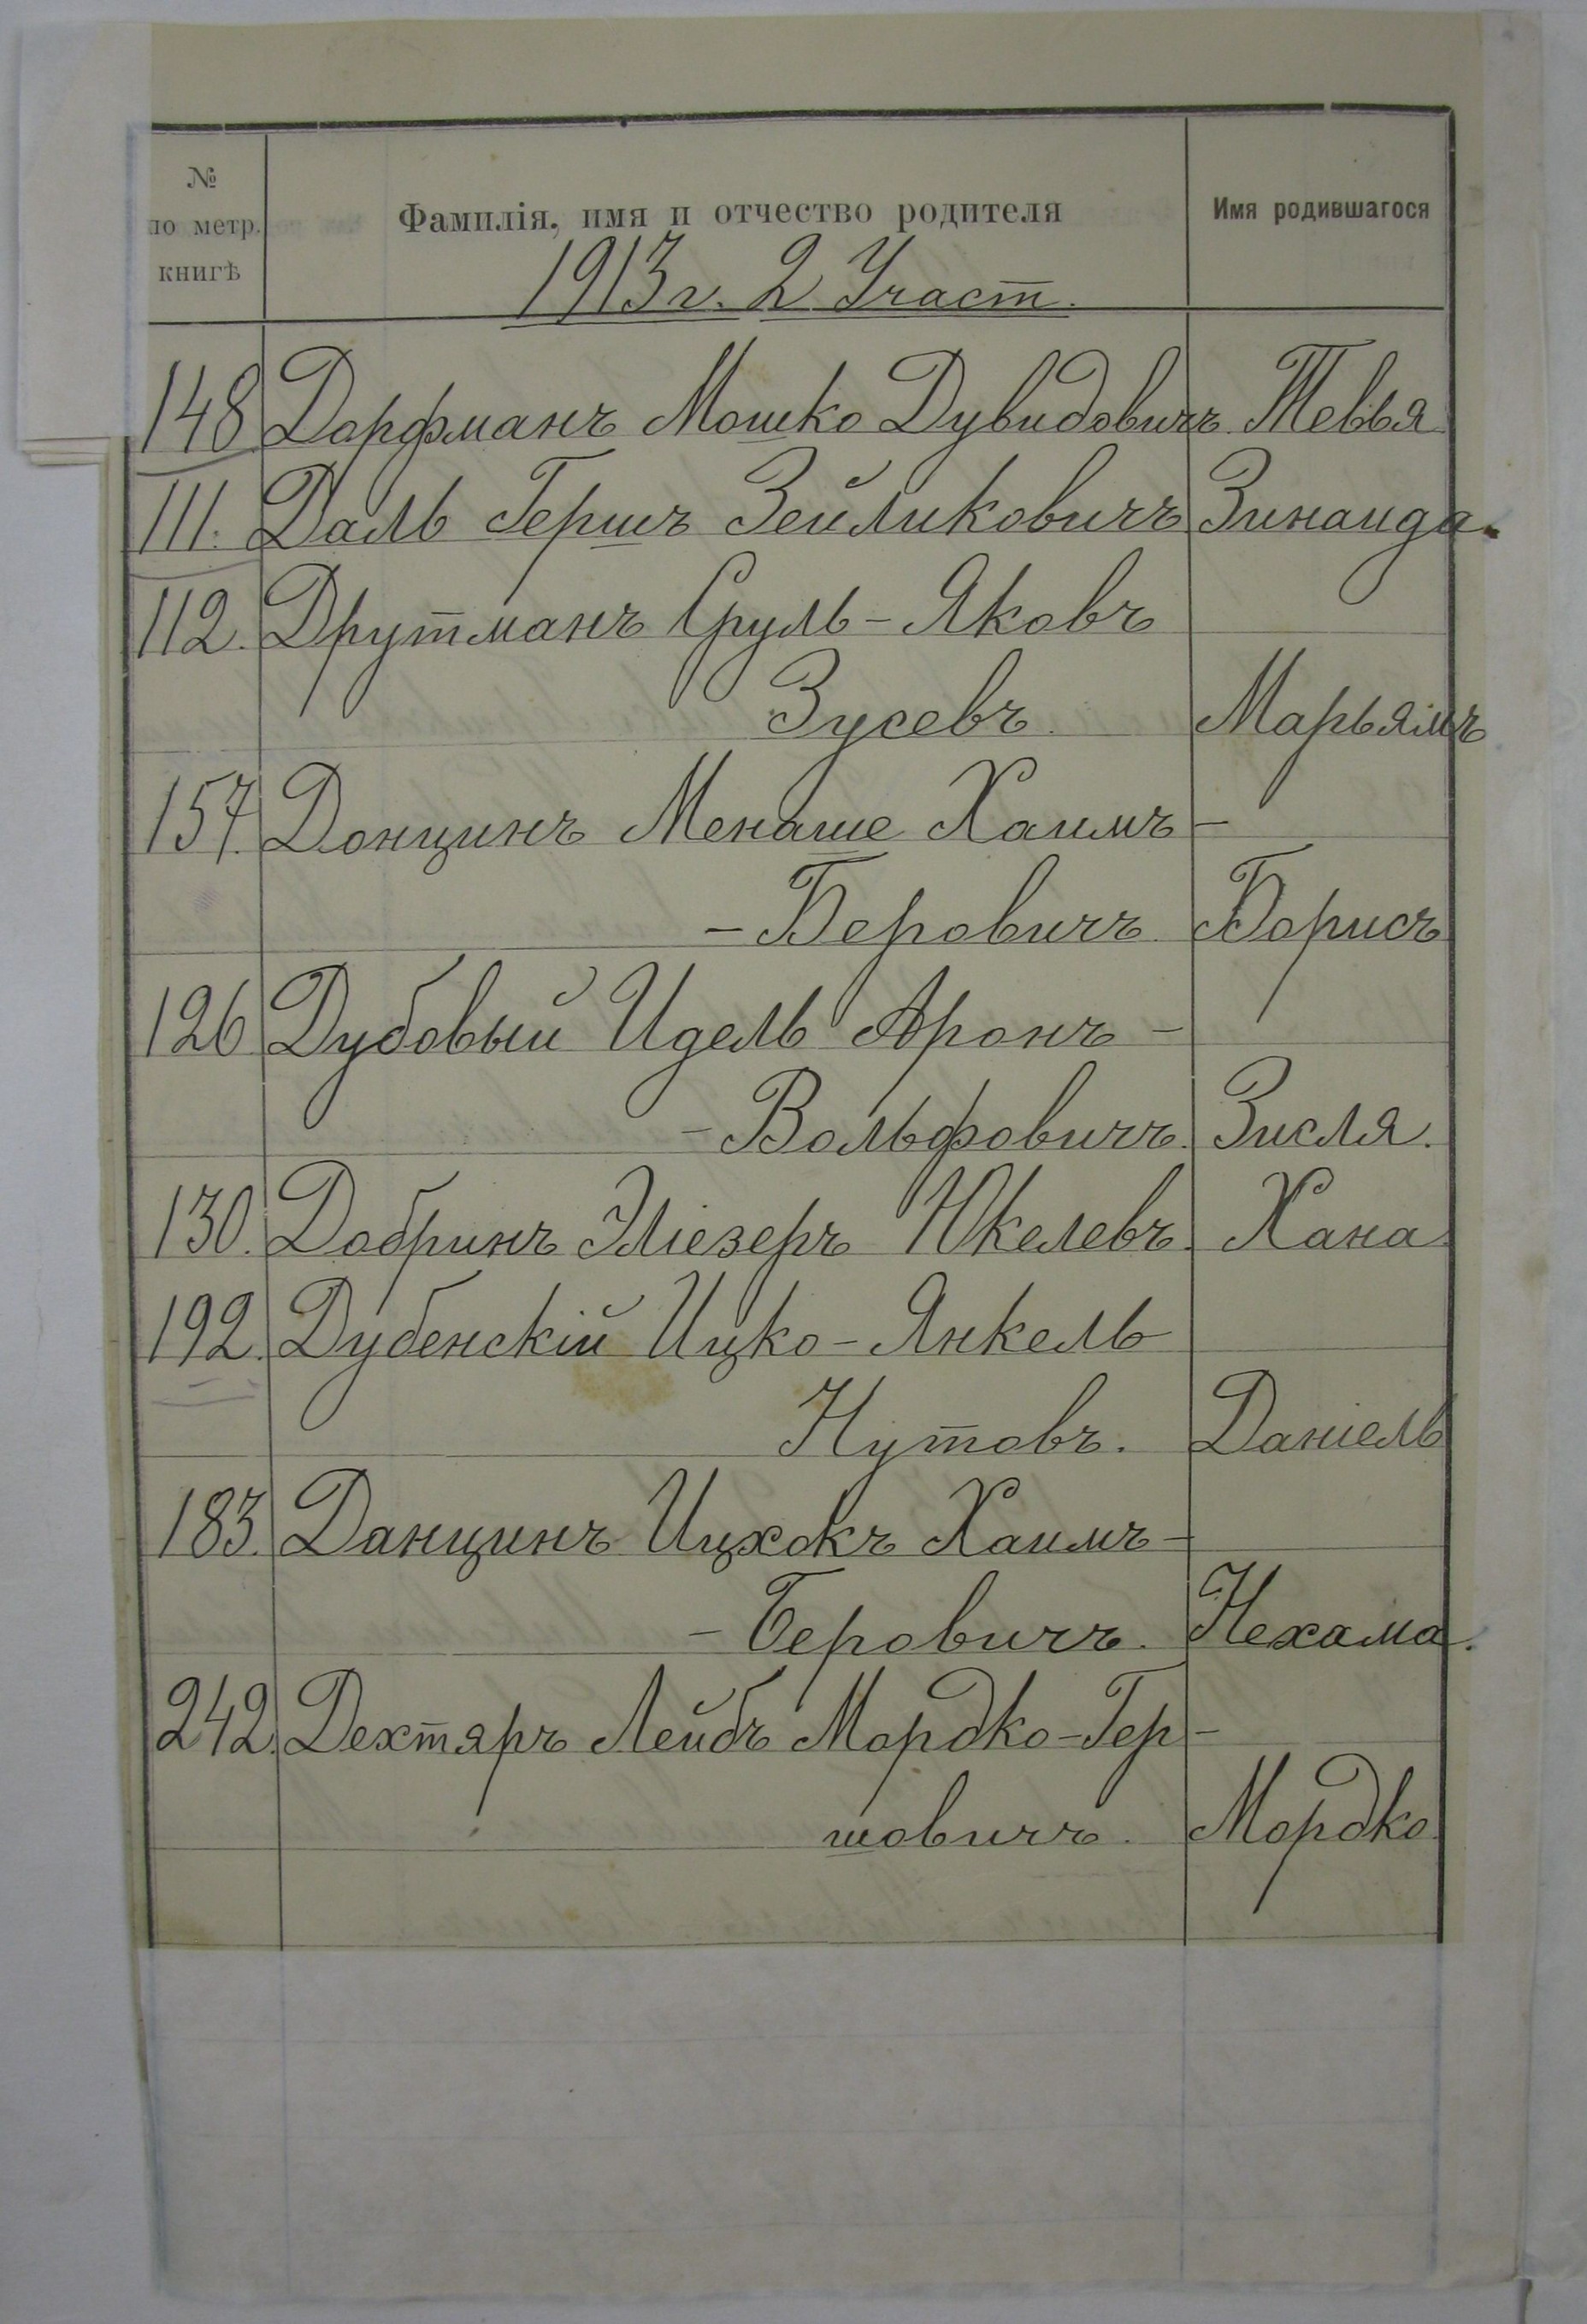 № по метр. книгѣ
Фамилія, имя и отчество родителя
Имя родившагося
1913 г. 2 Участ.
148 Дорфманъ Мошко Дувидовичъ Тевья
111. Даль Гершъ Зейликовичъ Зинаида.
112. Друтманъ Сруль-Яковъ
Зусевъ. Марьямъ
157. Донцинъ Менаше Хаимъ-
-Беровичъ Борисъ
126 Дубовый Идель Аронъ-
-Вольфовичъ. Зисля.
130. Добринъ Эліезеръ Юкелевъ. Хана
192. Дубенскій Ицко-Янкель
Нутовъ. Даніель
183. Данцинъ Ицхокъ Хаимъ-
-Беровичъ. Нехама.
242. Дехтяръ Лейбъ Мордко-Гер-
шовичъ. Мордко